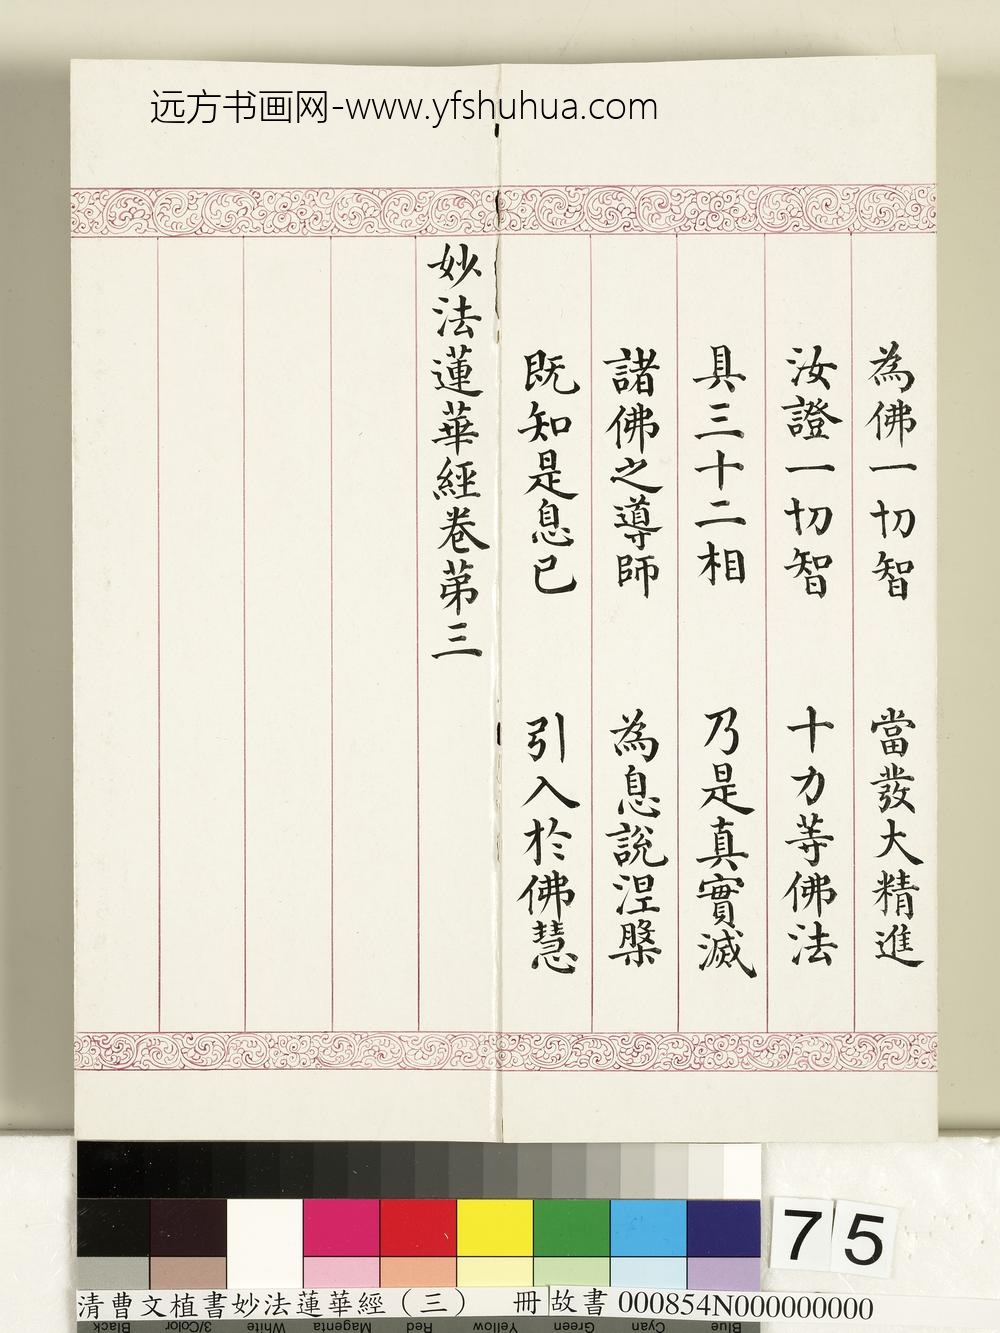 远方书画网-www.yfshuhua.com
為佛一切智 當發大精進
汝證一切智 十力等佛法
具三十二相 乃是真實滅
諸佛之導師 為息說涅槃
既知是息已 引入於佛慧
妙法蓮華經卷第三
75
清曹文植書妙法蓮華經（三） 冊 故書 000854N000000000
Black 3/Color White Magenta Red Yellow Green Cyan Blue